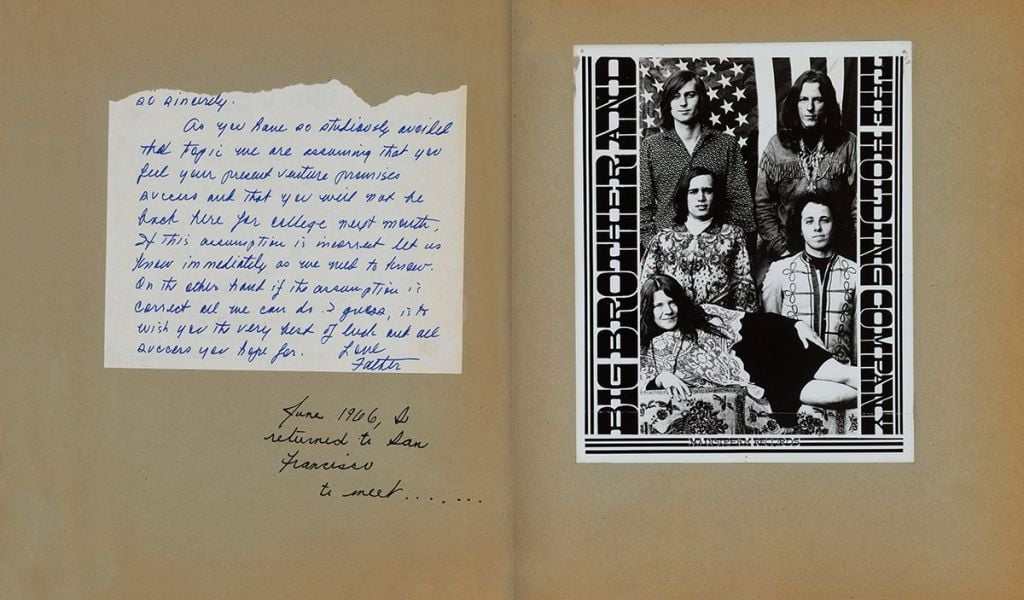 so sincerely.
As you have so studiously avoided
the topic we are assuming that you
feel your present venture promises
success and that you will not be
back here for college next month,
If this assumption is incorrect let us
know immediately as we need to know.
On the other hand if the assumption is
correct all we can do I guess, is to
wish you the very best of luck and all
success you hope for. Love
Father
June 1966, I
returned to San
Francisco
to meet.......
BIG BROTHER AND
THE HOLDING COMPANY
MAINSTREAM RECORDS